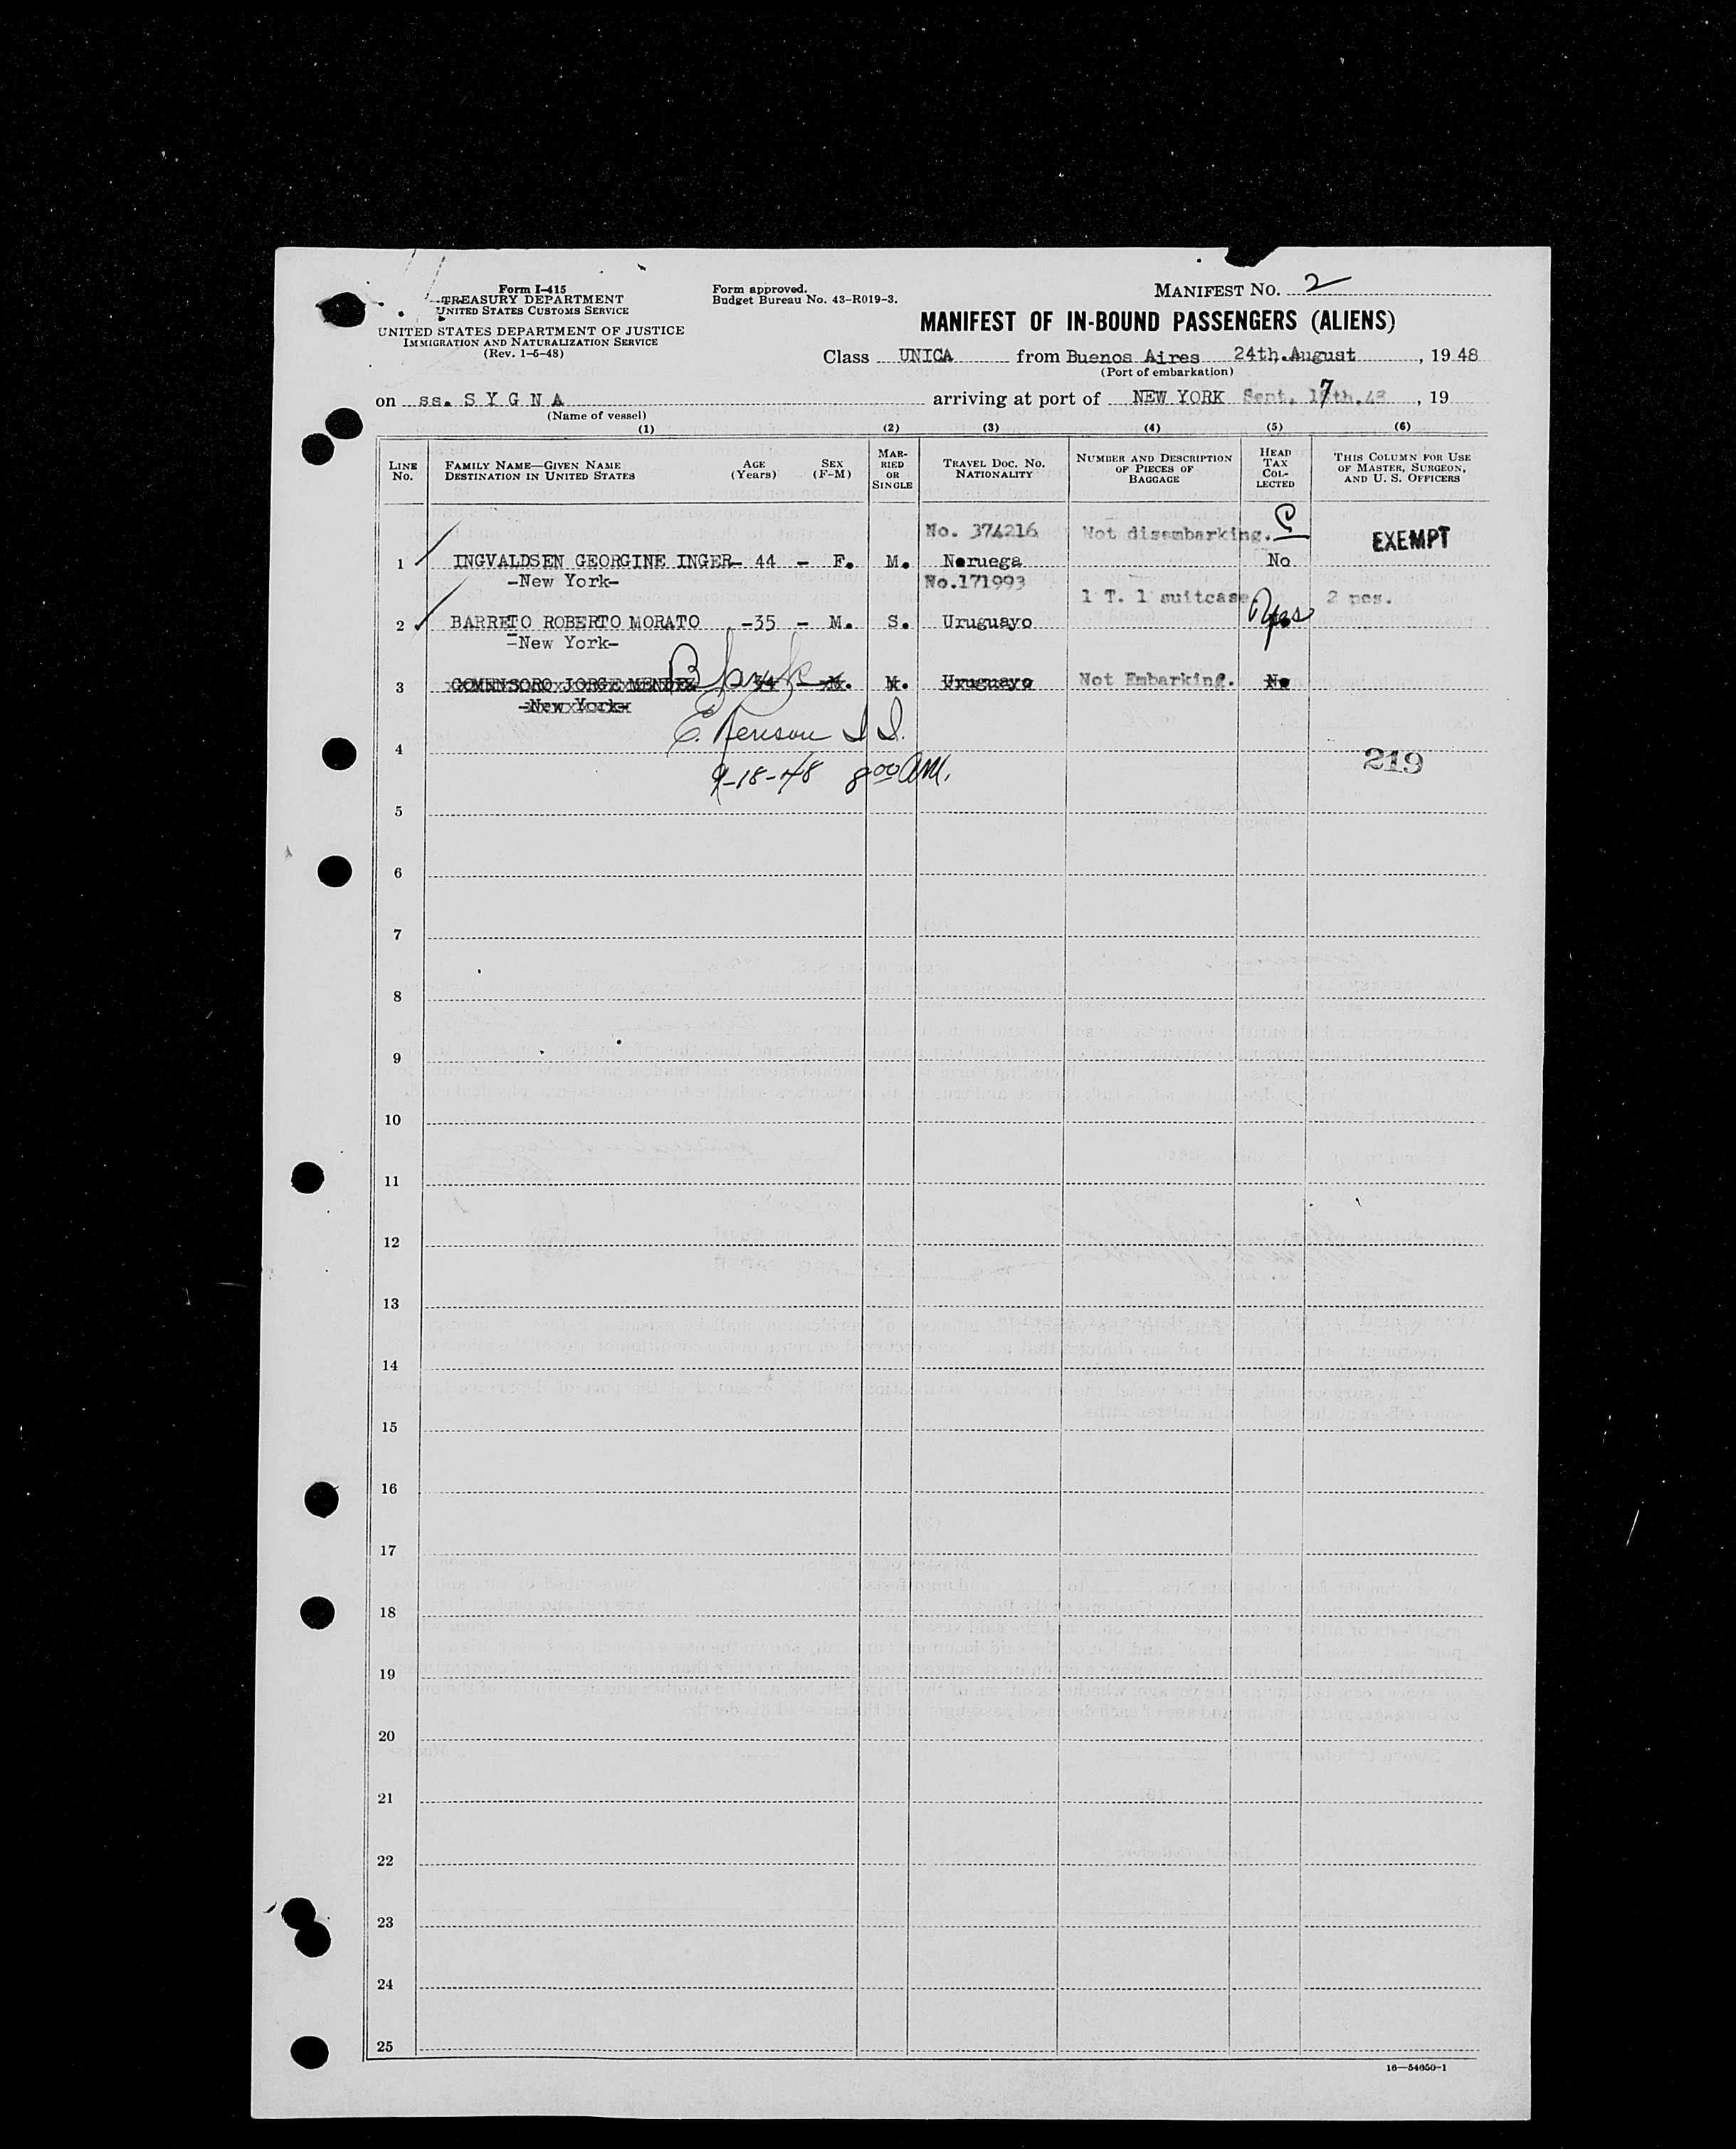 Form I-415
TREASURY DEPARTMENT
UNITED STATES CUSTOMS SERVICE
UNITED STATES DEPARTMENT OF JUSTICE
IMMIGRATION AND NATURALIZATION SERVICE
(Rev. 1-5-48)
Form approved.
Budget Bureau No. 43-R019-3.
MANIFEST NO. 2
MANIFEST OF IN-BOUND PASSENGERS (ALIENS)
Class UNICA from Buenos Aires 24th.August, 19 48
(Port of embarkation)
on ss. S Y G N A arriving at port of NEW YORK Sept. 17th.48, 19
(Name of vessel)
(1) (2) (3) (4) (5) (6)
LINE No. FAMILY NAME—GIVEN NAME DESTINATION IN UNITED STATES AGE (Years) SEX (F-M) MARRIED OR SINGLE TRAVEL DOC. NO. NATIONALITY NUMBER AND DESCRIPTION OF PIECES OF BAGGAGE HEAD TAX COLLECTED THIS COLUMN FOR USE OF MASTER, SURGEON, AND U. S. OFFICERS
No. 374216 Not disembarking. EXEMPT
1 INGVALDSEN GEORGINE INGER- 44 - F. M. Noruega No
-New York- No.171993
1 T. 1 suitcase. 2 pcs.
2 BARRETO ROBERTO MORATO -35 - M. S. Uruguayo Yes
-New York-
3 GOMENSORO JORGE MENDEZ 34 - M. M. Uruguayo Not Embarking. No
-New York-
E. Renison I I.
4 219
9-18-48 8 00 AM.
5
6
7
8
9
10
11
12
13
14
15
16
17
18
19
20
21
22
23
24
25
16—54650-1